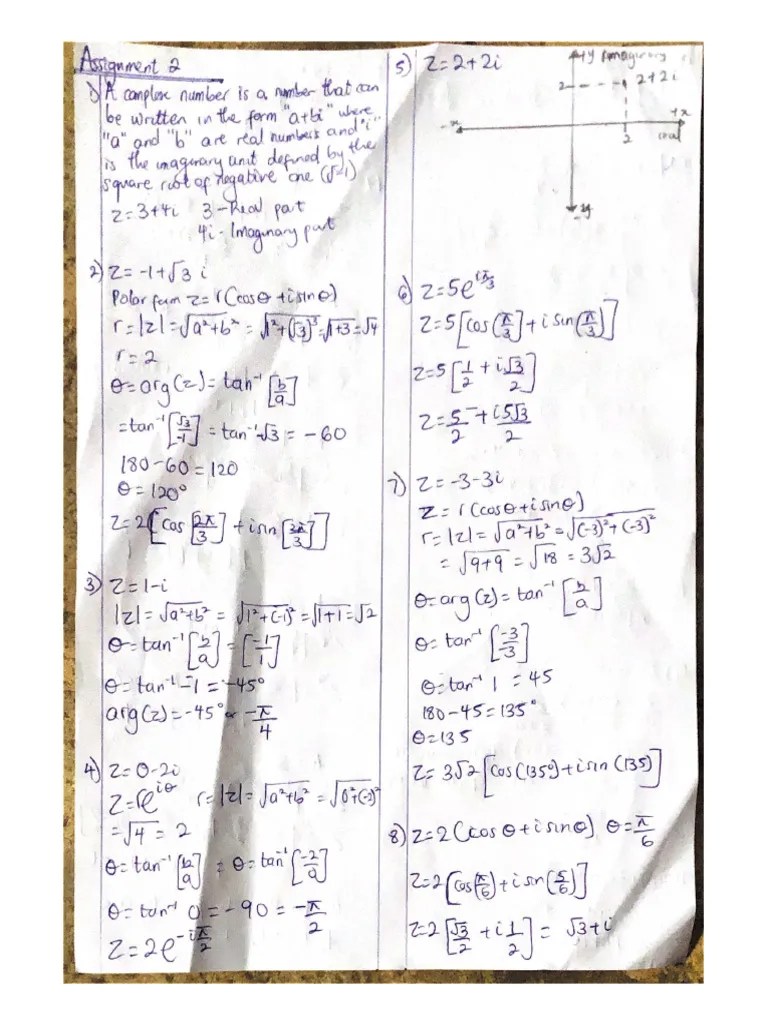 Assignment 2
1) A complex number is a number that can
be written in the form "a+bi" where
"a" and "b" are real numbers and "i"
is the imaginary unit defined by the
square root of negative one (√-1)
z = 3+4i 3 - Real part
4i - Imaginary part
2) z = -1+√3 i
Polar form z = r(cosθ + i sinθ)
r = |z| = √a²+b² = √1²+(√3)² = √1+3 = √4
r = 2
θ = arg(z) = tan⁻¹ [b/a]
= tan⁻¹ [√3/-1] = tan⁻¹ -√3 = -60
180-60 = 120
θ = 120°
z = 2[cos [2π/3] + i sin [2π/3]]
3) z = 1-i
|z| = √a²+b² = √1²+(-1)² = √1+1 = √2
θ = tan⁻¹ [b/a] = [-1/1]
θ = tan⁻¹ -1 = -45°
arg(z) = -45° or -π/4
4) z = 0-2i
z = re^iθ r = |z| = √a²+b² = √0²+(-2)²
= √4 = 2
θ = tan⁻¹ [b/a] = θ = tan⁻¹ [-2/0]
θ = tan⁻¹ 0 = -90 = -π/2
z = 2e^-iπ/2
5) z = 2+2i
+y Imaginary
2 2+2i
-x +x
2 real
-y
6) z = 5e^iπ/3
z = 5[cos(π/3) + i sin(π/3)]
z = 5[1/2 + i√3/2]
z = 5/2 + i5√3/2
7) z = -3-3i
z = r(cosθ + i sinθ)
r = |z| = √a²+b² = √(-3)²+(-3)²
= √9+9 = √18 = 3√2
θ = arg(z) = tan⁻¹ [b/a]
θ = tan⁻¹ [-3/-3]
θ = tan⁻¹ 1 = 45
180-45 = 135°
θ = 135
z = 3√2 [cos(135°) + i sin(135)]
8) z = 2(cosθ + i sinθ) θ = π/6
z = 2[cos(π/6) + i sin(5/6)]
z = 2[√3/2 + i 1/2] = √3+i